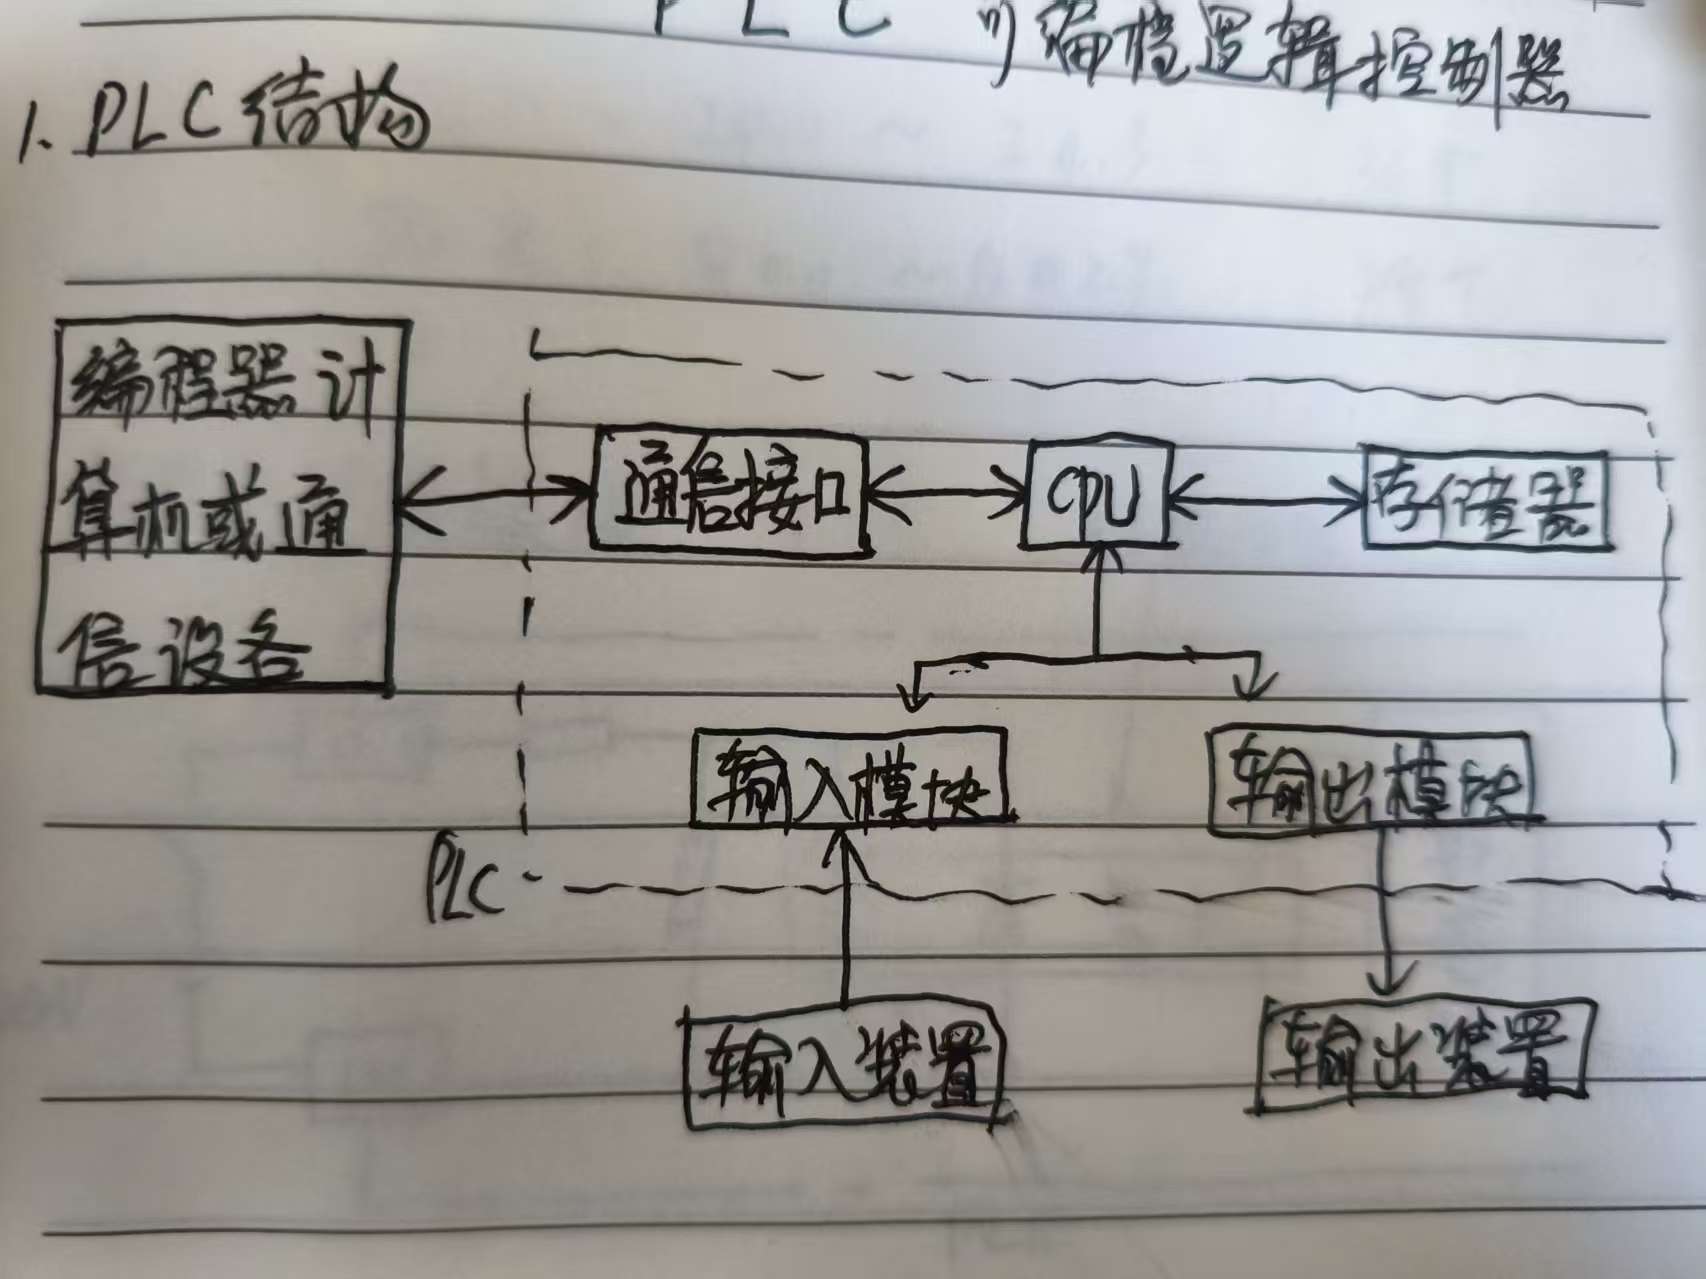 PLC 可编程逻辑控制器
1. PLC结构
编程器计
算机或通
信设备
通信接口
CPU
存储器
输入模块
输出模块
PLC
输入装置
输出装置